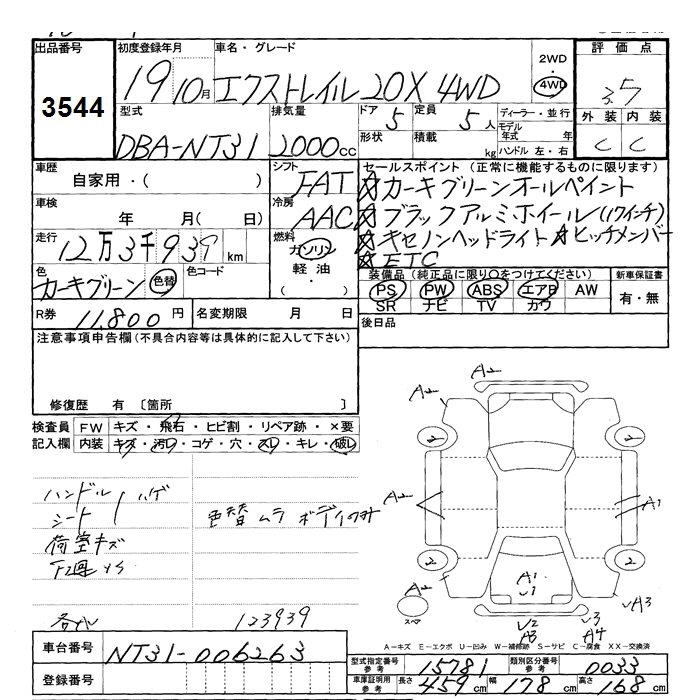 出品番号 初度登録年月 車名・グレード 2WD 評価点
3544 19 10月 エクストレイル 20X 4WD 4WD 3.5
型式 排気量 ドア 5 定員 5人 ディーラー・並行 外装 内装
DBA-NT31 2000cc 形状 積載 kg モデル年式 年 ハンドル 左・右 C C
車歴 シフト セールスポイント(正常に機能するものに限ります)
自家用・( ) FAT ☆カーキグリーンオールペイント
車検 冷房 ☆ブラックアルミホイール(17インチ)
年 月( 日) AAC ☆キセノンヘッドライト ☆ヒッチメンバー
走行 燃料 ☆ETC
12万3千939km ガソリン
色 色替 色コード 軽油 装備品(純正品に限り○をつけてください) 新車保証書
カーキグリーン ・( ) PS PW ABS エアB AW 有・無
SR ナビ TV カワ
R券 11,800円 名変期限 月 日 後日品
注意事項申告欄(不具合内容等は具体的に記入して下さい)
修復歴 有 [箇所 ]
検査員 FW キズ・飛石・ヒビ割・リペア跡・×要
記入欄 内装 キズ・汚レ・コゲ・穴・スレ・キレ・破レ
ハンドル ハゲ
シート
色替 ムラ
荷室キズ
123939
A2 A2
2 2
A2 A1
2 2
A1
A2 スペア
V2 V3
A3 A4
A-キズ E-エクボ U-凹み W-補修跡 S-サビ C-腐食 XX-交換済
車台番号 NT31-006263 型式指定番号 参考 15781 類別区分番号 参考 0033
登録番号 車庫証明用 参考 長さ 459cm 幅 178cm 高さ 168cm